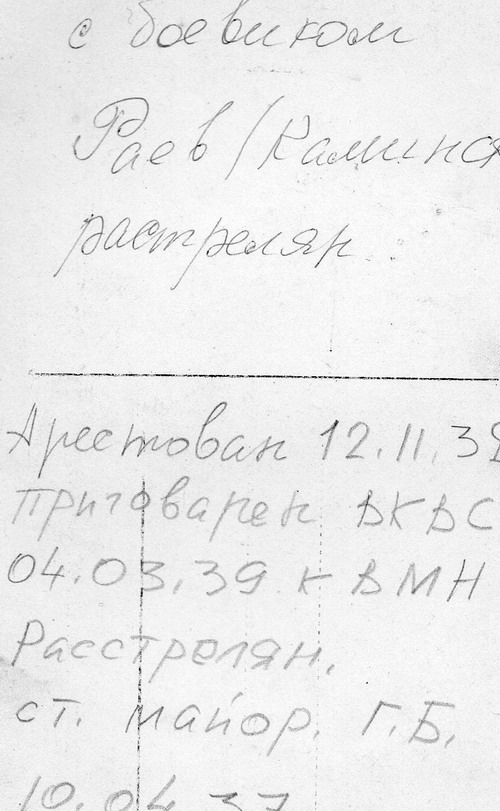 с боевиком
Раев (Каминск
растрелян
Арестован 12.11.38
приговарен ВКВС
04.03.39 к ВМН
Расстрелян.
ст. майор. Г.Б.
10.04.37